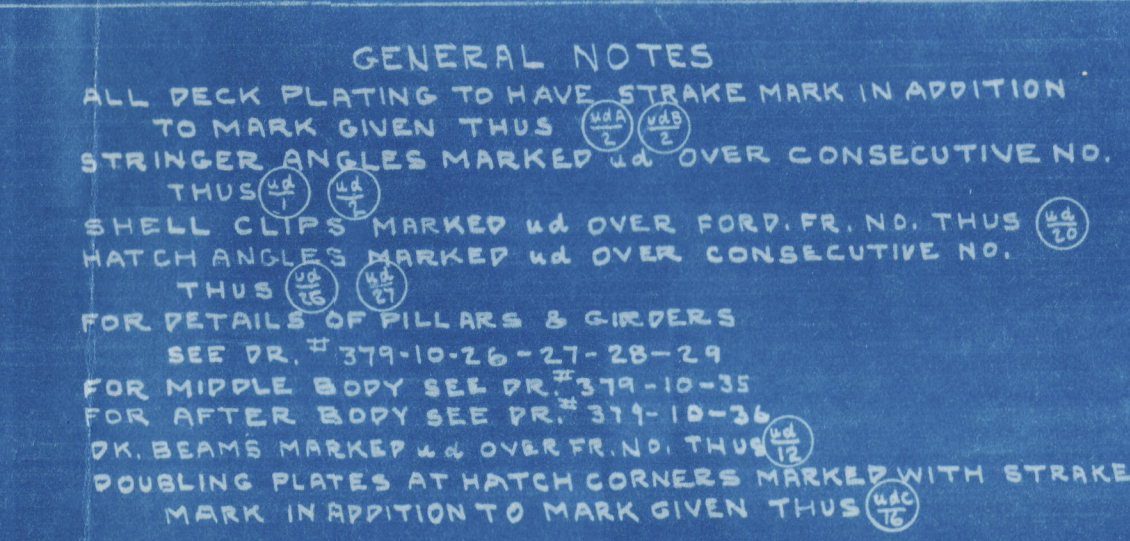 GENERAL NOTES
ALL DECK PLATING TO HAVE STRAKE MARK IN ADDITION
TO MARK GIVEN THUS udA/2 udB/2
STRINGER ANGLES MARKED ud OVER CONSECUTIVE NO.
THUS ud/1 ud/2
SHELL CLIPS MARKED ud OVER FORD. FR. NO. THUS ud/20
HATCH ANGLES MARKED ud OVER CONSECUTIVE NO.
THUS ud/26 ud/27
FOR DETAILS OF PILLARS & GIRDERS
SEE DR. # 379-10-26-27-28-29
FOR MIDDLE BODY SEE DR. # 379-10-35
FOR AFTER BODY SEE DR. # 379-10-36
DK. BEAMS MARKED ud OVER FR. NO. THUS ud/12
DOUBLING PLATES AT HATCH CORNERS MARKED WITH STRAKE
MARK IN ADDITION TO MARK GIVEN THUS udC/16